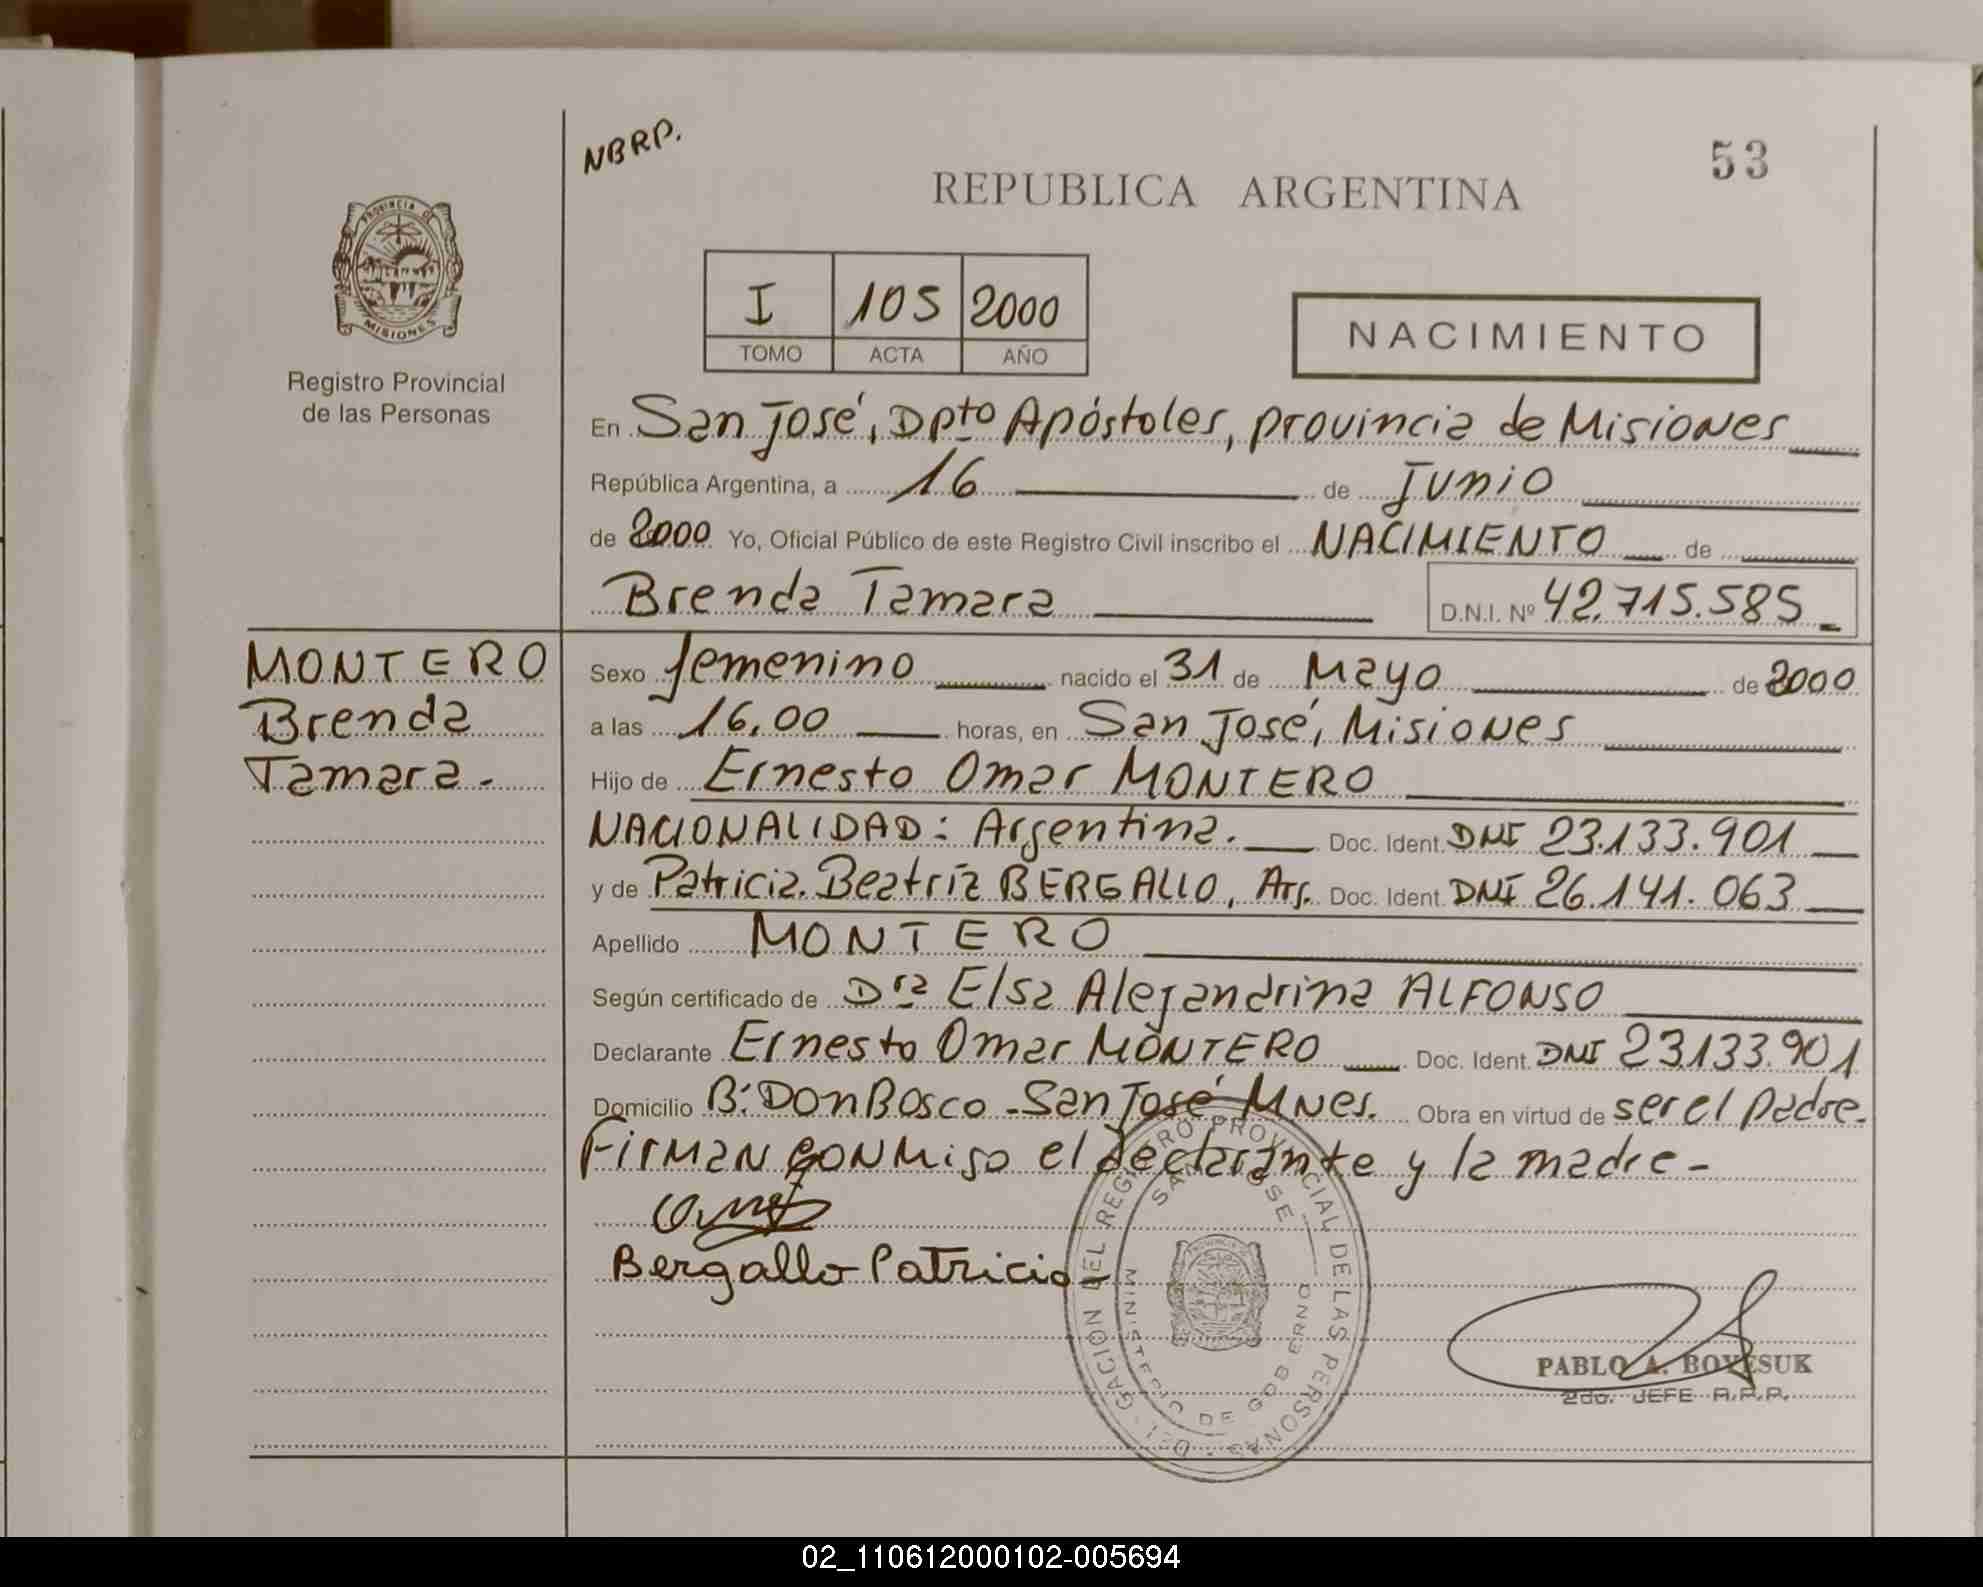 NBRP.
53
REPUBLICA ARGENTINA
PROVINCIA DE
MISIONES
Registro Provincial
de las Personas
I 105 2000
TOMO ACTA AÑO
NACIMIENTO
En San José, Dpto Apóstoles, provincia de Misiones
República Argentina, a 16 de Junio
de 2000 Yo, Oficial Público de este Registro Civil inscribo el NACIMIENTO de
Brenda Tamara D.N.I. Nº 42.715.585
MONTERO
Brenda
Tamara.
Sexo femenino nacido el 31 de Mayo de 2000
a las 16,00 horas, en San José, Misiones
Hijo de Ernesto Omar MONTERO
NACIONALIDAD: Argentina. Doc. Ident. DNI 23.133.901
y de Patricia Beatríz BERGALLO, Arg. Doc. Ident. DNI 26.141.063
Apellido MONTERO
Según certificado de Dra Elsa Alejandrina ALFONSO
Declarante Ernesto Omar MONTERO Doc. Ident. DNI 23.133.901
Domicilio B: Don Bosco - San José Mnes. Obra en virtud de ser el padre.
Firman conmigo el declarante y la madre -
Bergallo Patricia
DELEGACION DEL REGISTRO PROVINCIAL DE LAS PERSONAS
SAN JOSE
MINISTERIO DE GOBIERNO
PABLO A. BOYESUK
2do. JEFE R.P.P.
02_110612000102-005694